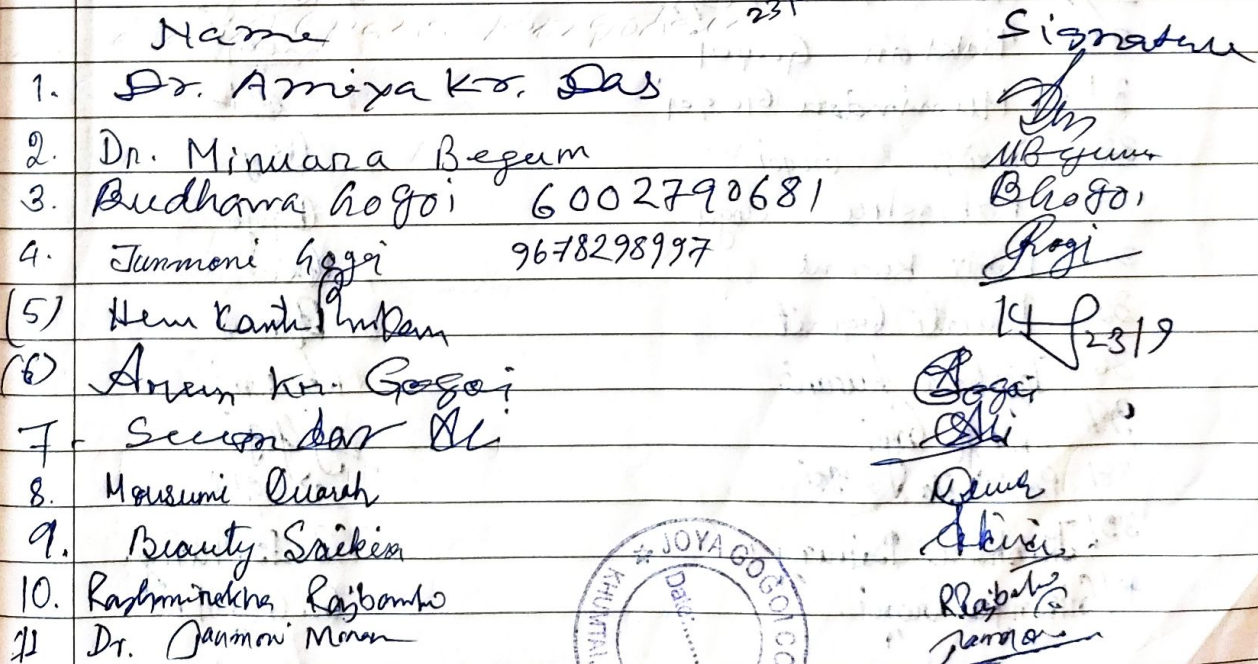 Name Signature
1. Dr. Amiya Kr. Das Das
2. Dr. Minuara Begum MBegum
3. Budhama Gogoi 6002790681 BGogoi
4. Junmoni Gogoi 9678298997 Gogi
(5) Hem Kanta 23/9
(6) Arun Kr. Gogoi Gogoi
7. Ali Ali
8. Mousumi Duarah
9. Beauty Saikia
10. Rashmirekha Rajbongshi
11 Dr. Junmoni Moran
JOYA GOGOI CO
KHUMTAI
Date: